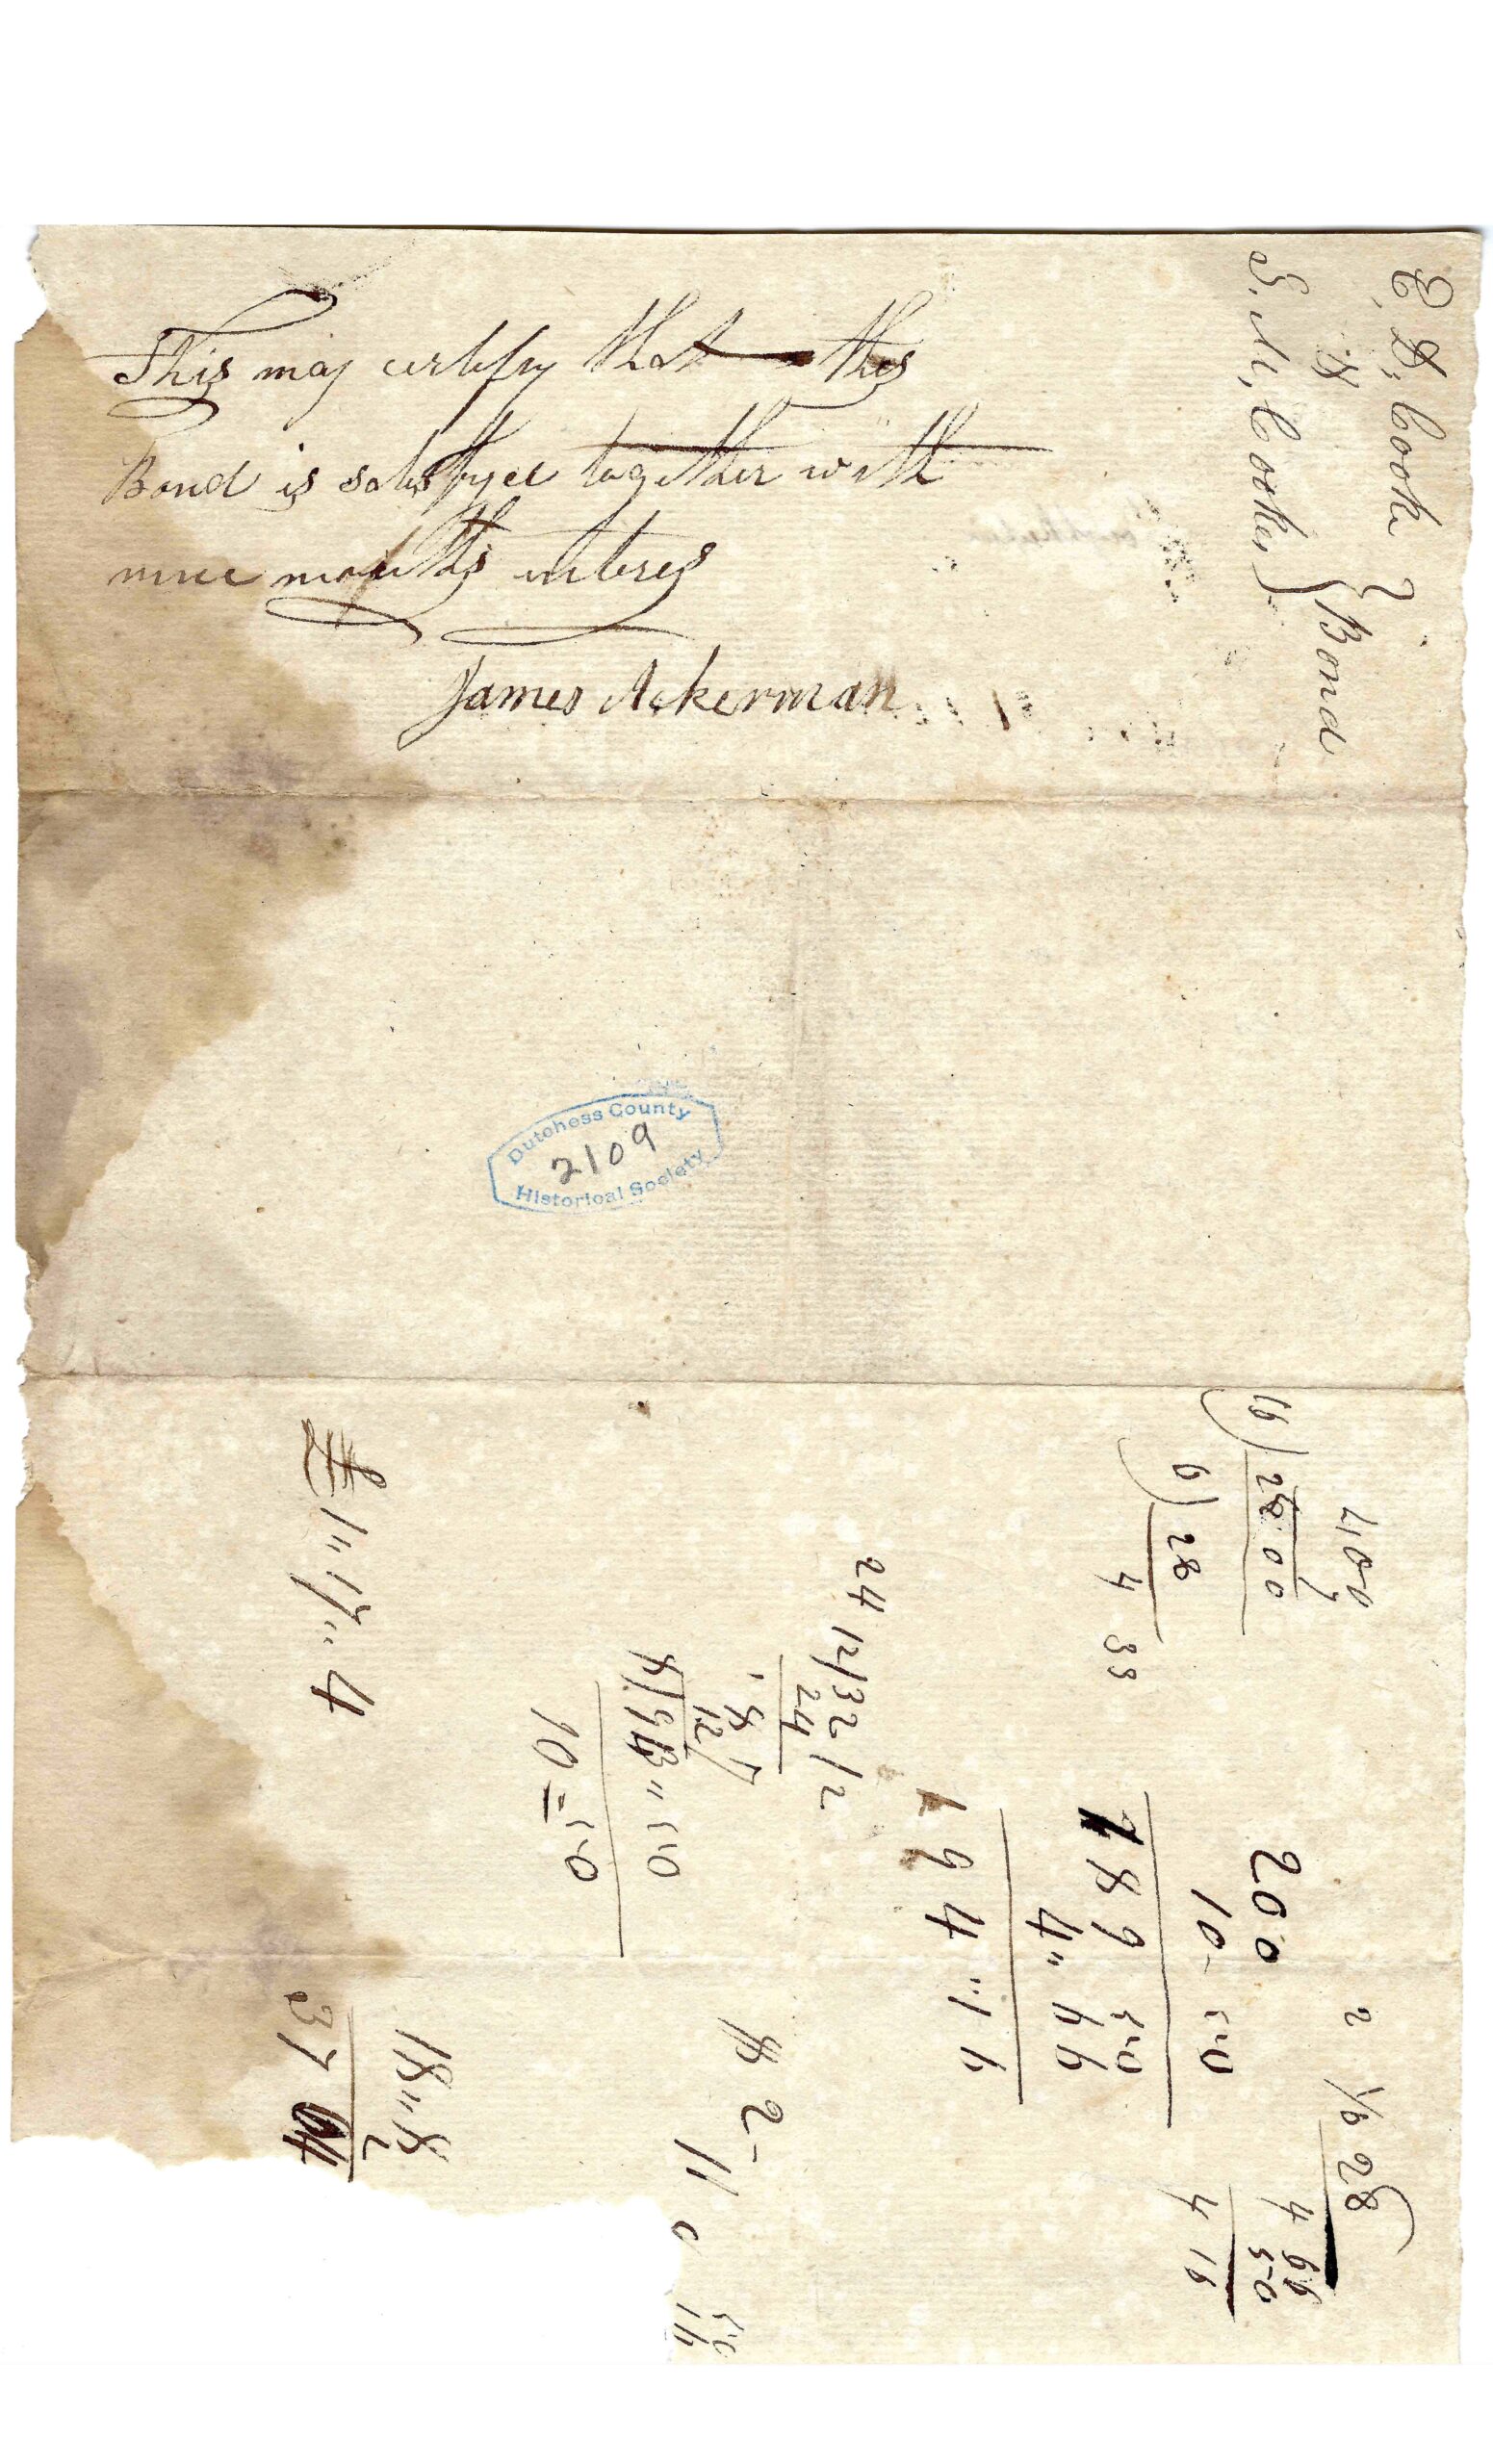 This may certify that this
Bond is satisfyed together with
nine months interes
James Ackerman
Cooke
&
S. M. Cooke
Bond
Dutchess County
2109
Historical Society
400
7
16) 2800
6) 28
4 33
200
10 . 50
189 50
4 " 66
194 " 16
24 12/32/2
24
8
12
10 = 50
£ 1 " 17 " 4
2 1/6 28
4 66
50
4 16
$ 2 -
11 0
50
18 " 8
37